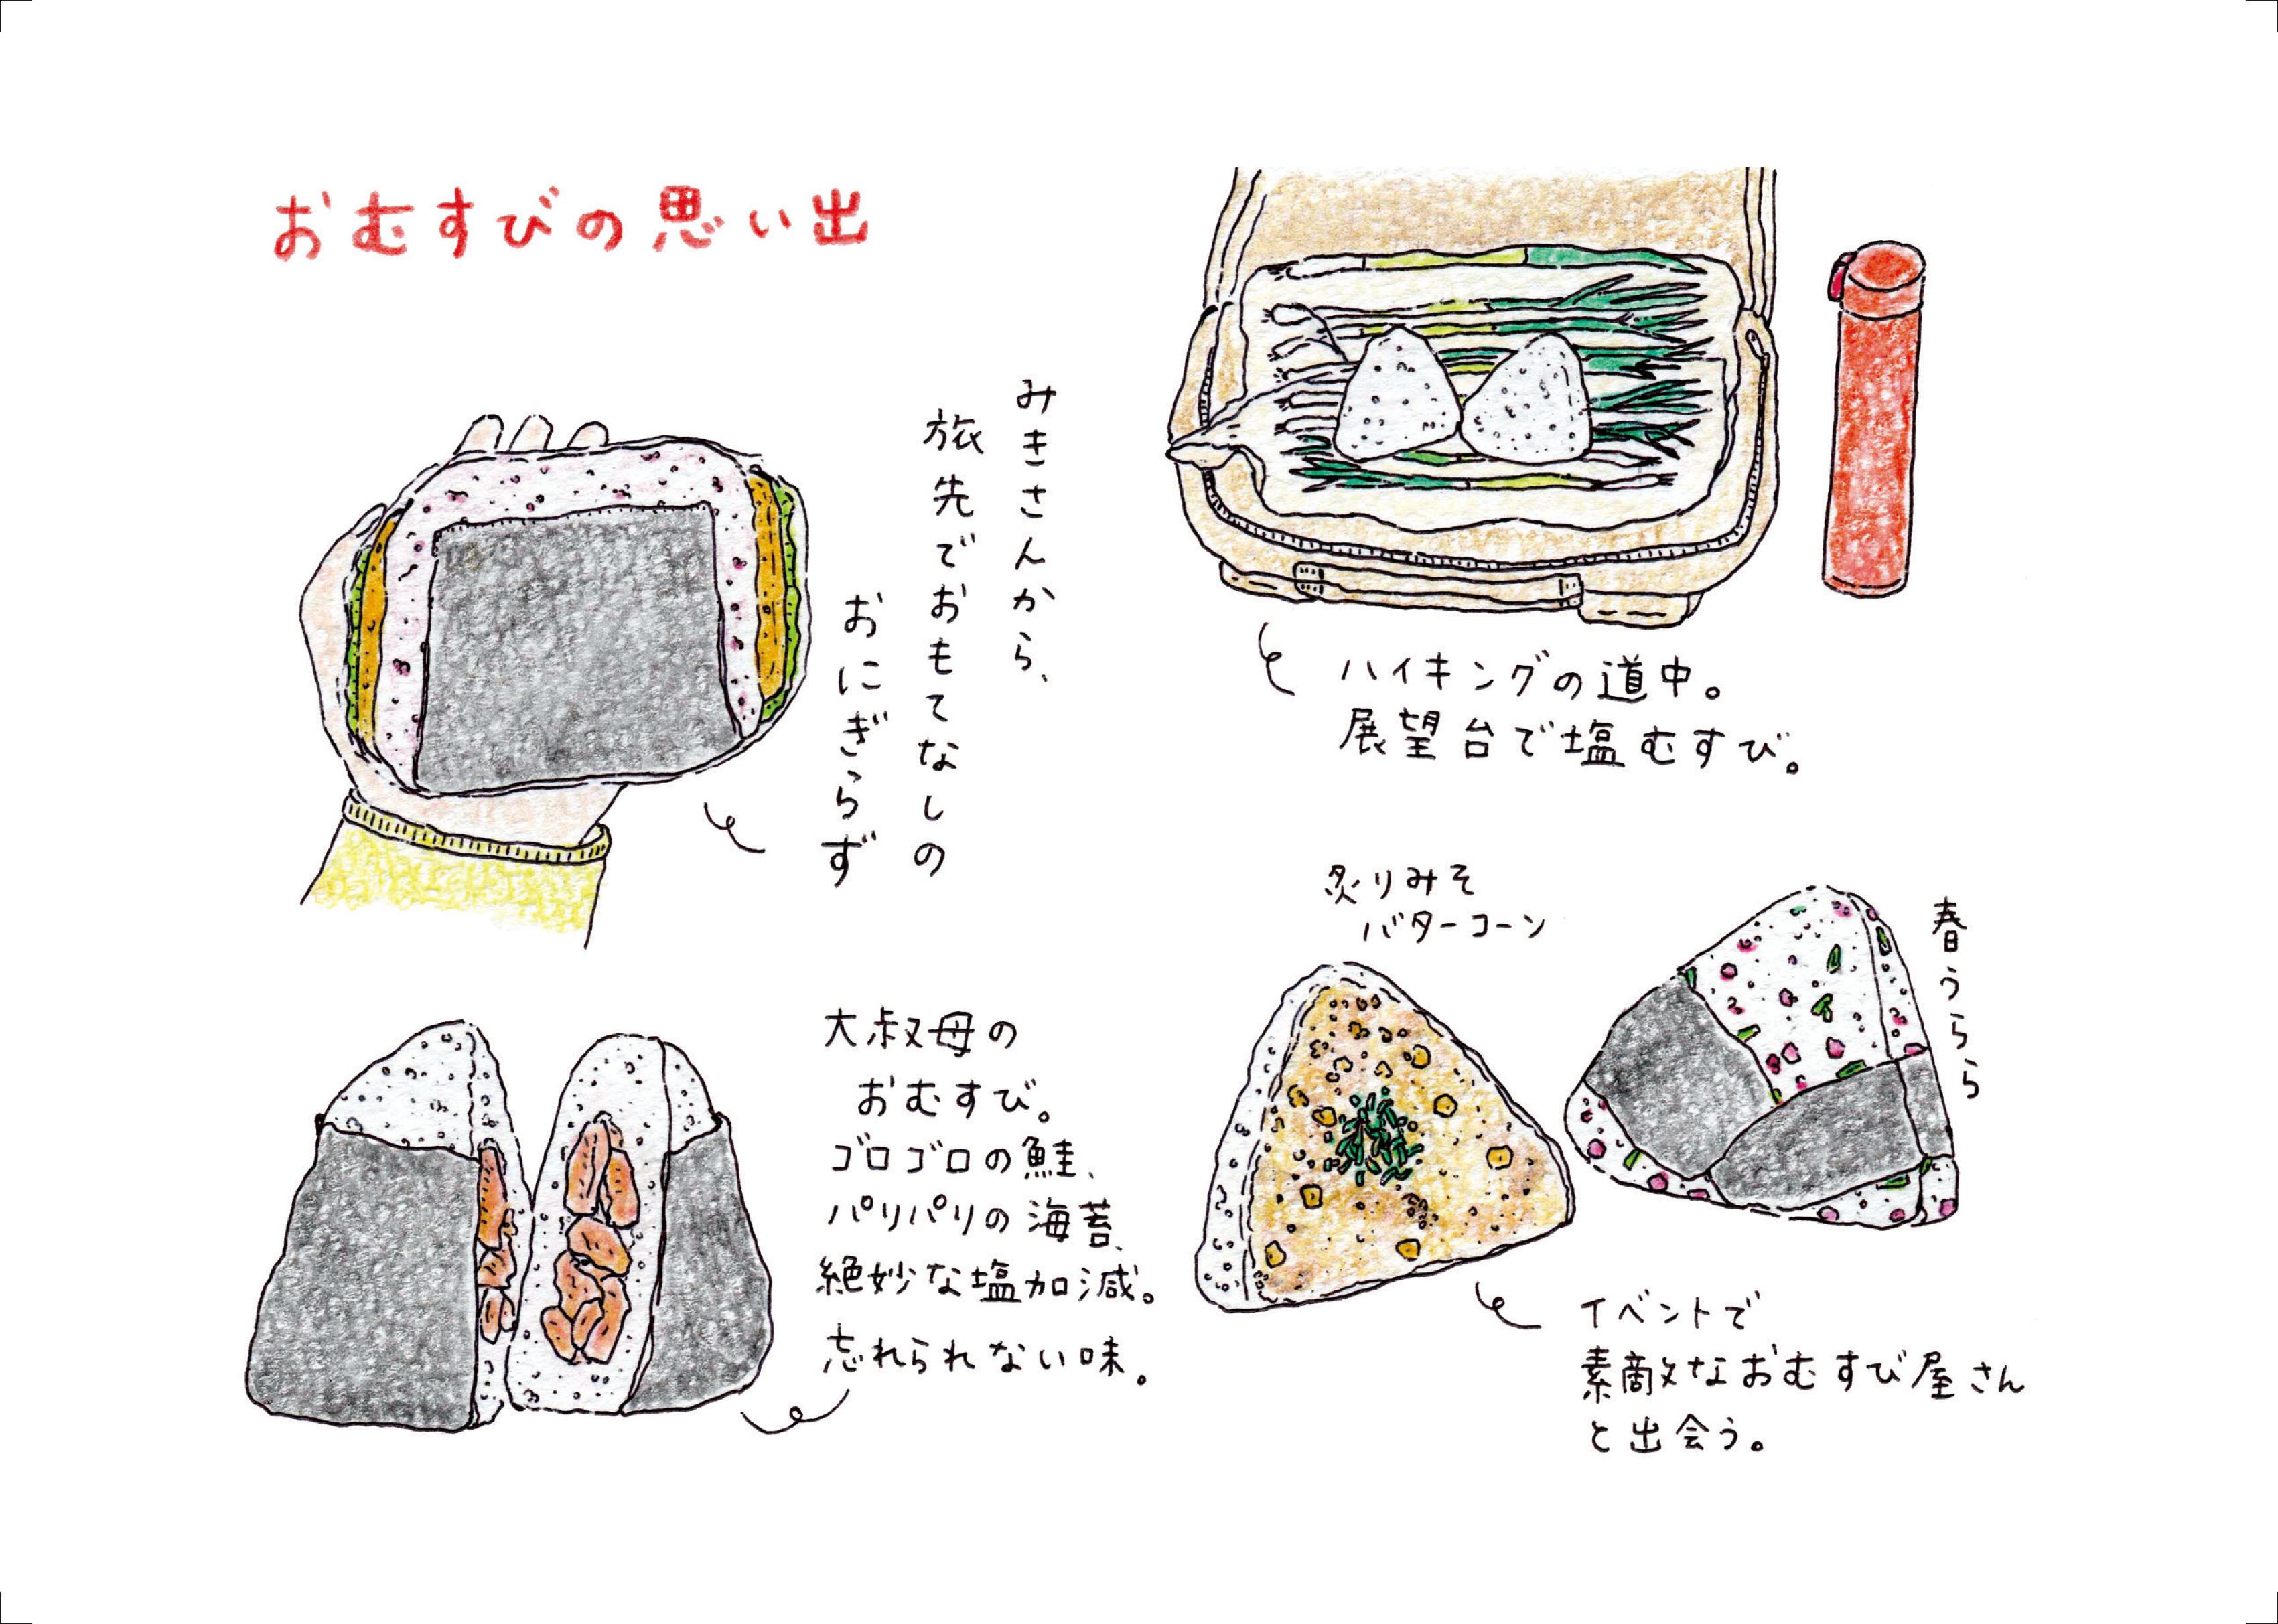 おむすびの思い出
みきさんから、
旅先でおもてなしの
おにぎらず
ハイキングの道中。
展望台で塩むすび。
大叔母の
おむすび。
ゴロゴロの鮭、
パリパリの海苔、
絶妙な塩加減。
忘れられない味。
炙りみそ
バターコーン
春うらら
イベントで
素敵なおむすび屋さん
と出会う。